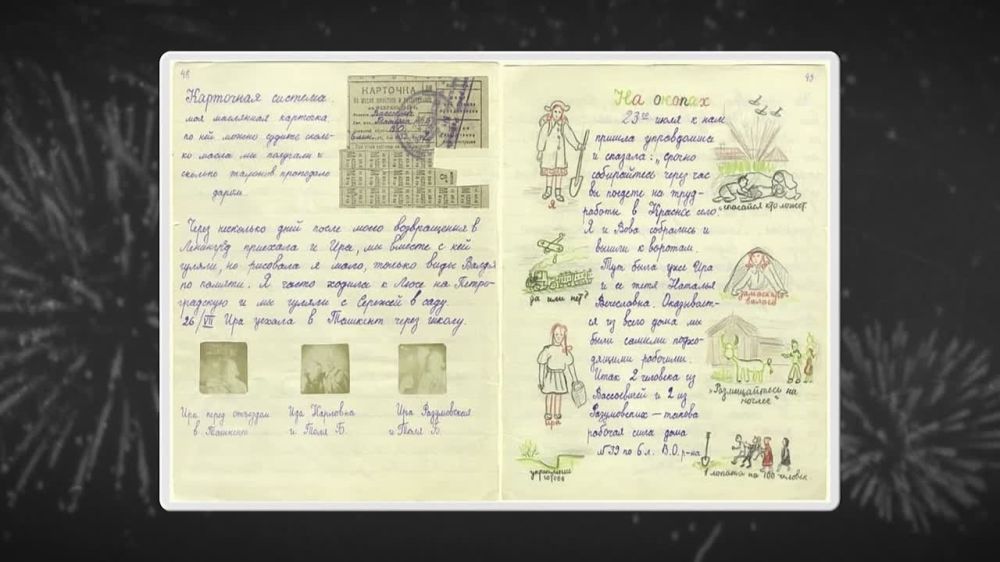 48
Карточная система.
моя маслянная карточка,
по ней можно судить сколь-
ко масла мы получали и
сколько талонов пропадало
даром.
КАРТОЧКА
Через несколько дней после моего возвращения в
Ленинград приехала и Ира, мы вместе с ней
гуляли, но рисовала я мало, только виды Валдая
по памяти. Я часто ходила к Люсе на Петро-
градскую и мы гуляли с Сережей в саду.
26/VII Ира уехала в Ташкент через школу.
Ира перед отъездом
в Ташкент
Ида Карловна
и Толя Б.
Ира Разумовская
и Толя Б.
49
На окопах
23го июля к нам
пришла управдомша
и сказала: "срочно
собирайтесь через час
вы поедете на труд-
работы в Красное село
Я и Вова собрались и
вышли к воротам.
Тут была уже Ира
и ее тетя Наталья
Вячеславна. Оказывает-
ся из всего дома мы
были самыми подхо-
дящими рабочими.
Итак 2 человека из
и 2 из
Разумовских — такова
рабочая сила дома
№39 по 6 л. В.О. р-на
Я
да или нет?
Ира
"спасайся кто может"
"Размещайтесь на
ночлег"
1 лопата на 100 человек.